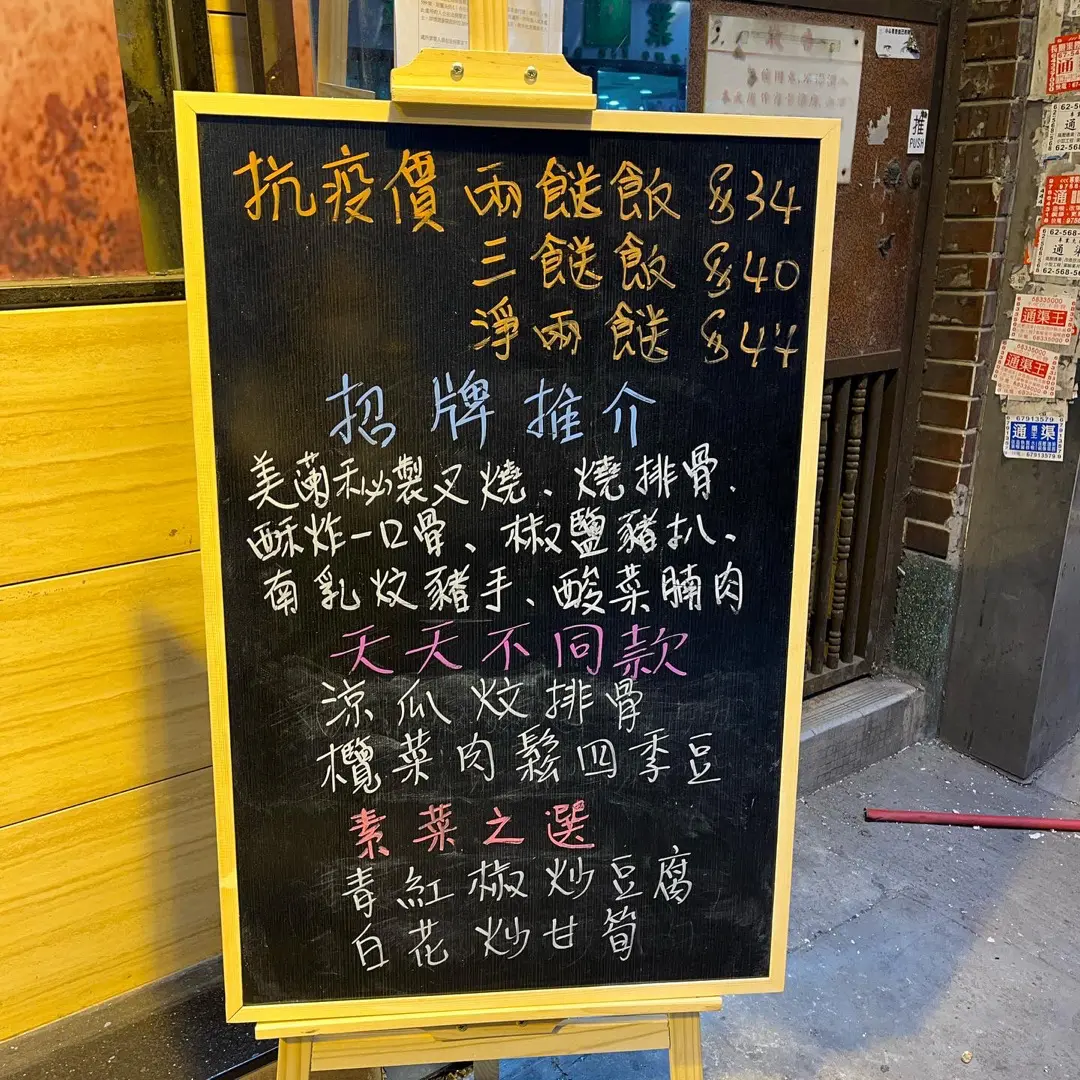 抗疫價 兩餸飯 $34
三餸飯 $40
淨兩餸 $44
招牌推介
美蘭秘製叉燒、燒排骨、
酥炸一口骨、椒鹽豬扒、
南乳炆豬手、酸菜腩肉
天天不同款
涼瓜炆排骨
欖菜肉鬆四季豆
素菜之選
青紅椒炒豆腐
白花炒甘筍
推
PUSH
通
62-568
通渠
68335000
通渠王
68335000
通渠王
67913579
通渠
67913579